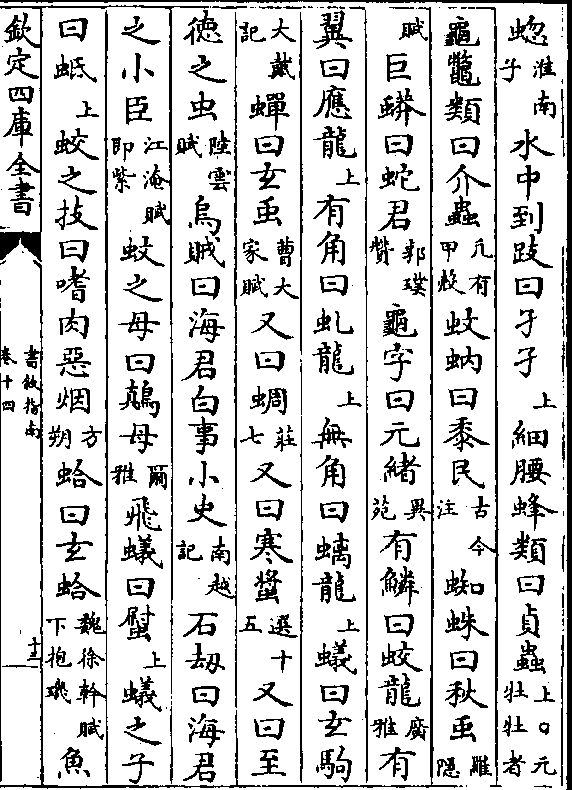 蟌淮南子水中到跂曰孑孑上細腰蜂類曰貞蟲上○元牡牡者
龜鼈類曰介蟲凡有甲殻蚊蚋曰黍民古今注蜘蛛曰秋䖝羅隱
賦巨蟒曰蛇君郭璞贊龜字曰元緒異苑有鱗曰蛟龍廣雅有
翼曰應龍上有角曰虬龍上無角曰螭龍上蟻曰玄駒
大戴記蟬曰玄䖝曹大家賦又曰蜩莊七又曰寒螿選十五又曰至
徳之虫陸雲賦烏賊曰海君白事小史南越記石刧曰海君
之小臣江淹賦即紫蚊之母曰鷏母爾雅飛蟻曰䘇上蟻之子
曰蚳上蛟之技曰嗜肉惡烟方朔蛤曰玄蛤魏徐幹賦下抱璣魚
欽定四庫全書
書敘指南
卷十四
十三